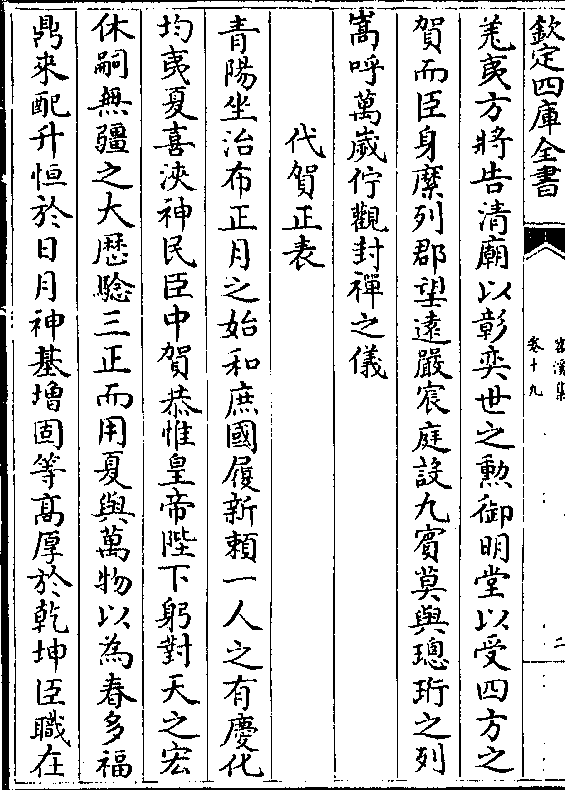 欽定四庫全書
卷十九
二
羌夷方將告清廟以彰奕世之勲御明堂以受四方之
賀而臣身縻列郡望逺嚴宸庭設九賓莫與璁珩之列
嵩呼萬歲佇觀封禪之儀
代賀正表
青陽坐治布正月之始和庶國履新頼一人之有慶化
均夷夏喜浹神民臣中賀恭惟皇帝陛下躬對天之宏
休嗣無疆之大歴騐三正而用夏與萬物以為春多福
鼎来配升恒於日月神基增固等髙厚於乾坤臣職在